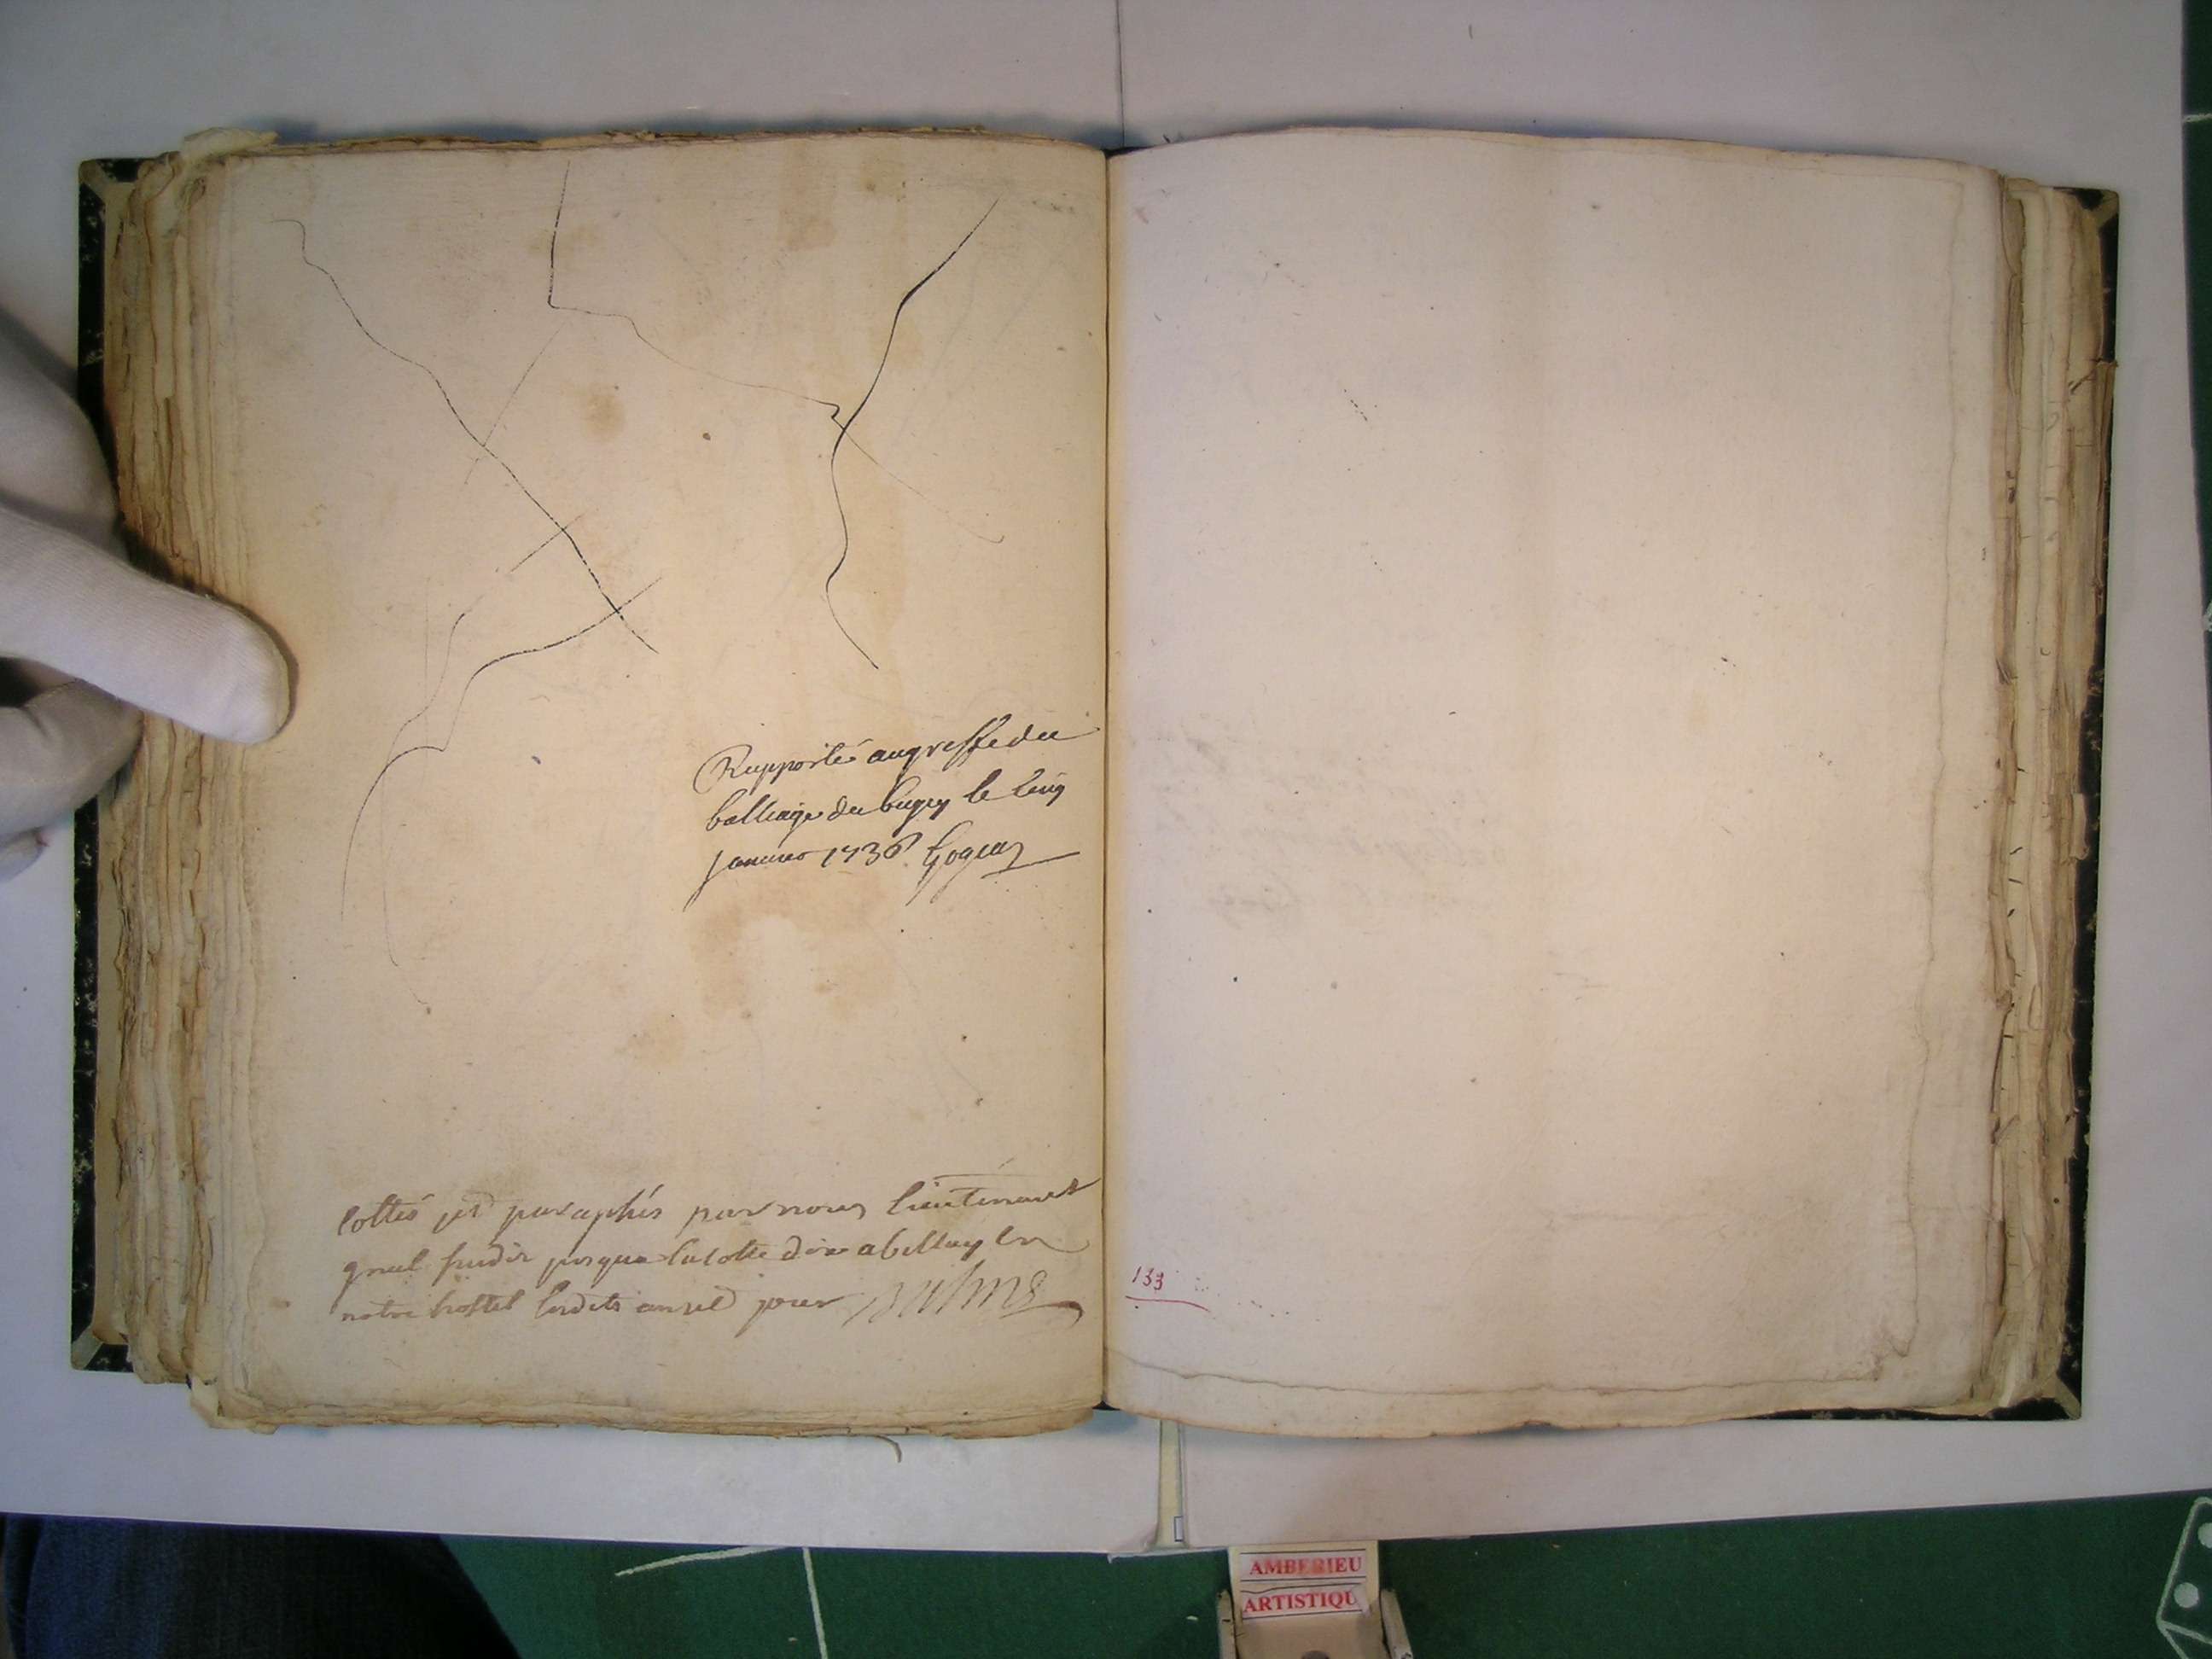 Rapporté au greffe du
balliage du bugey le cinq
Janvier 1736
Cottés et paraphés par nous lieutenant
gnal susdit jusqua la cotte dix a bellay en
notre hostel lesdits an et jour
133
AMBERIEU
ARTISTIQU